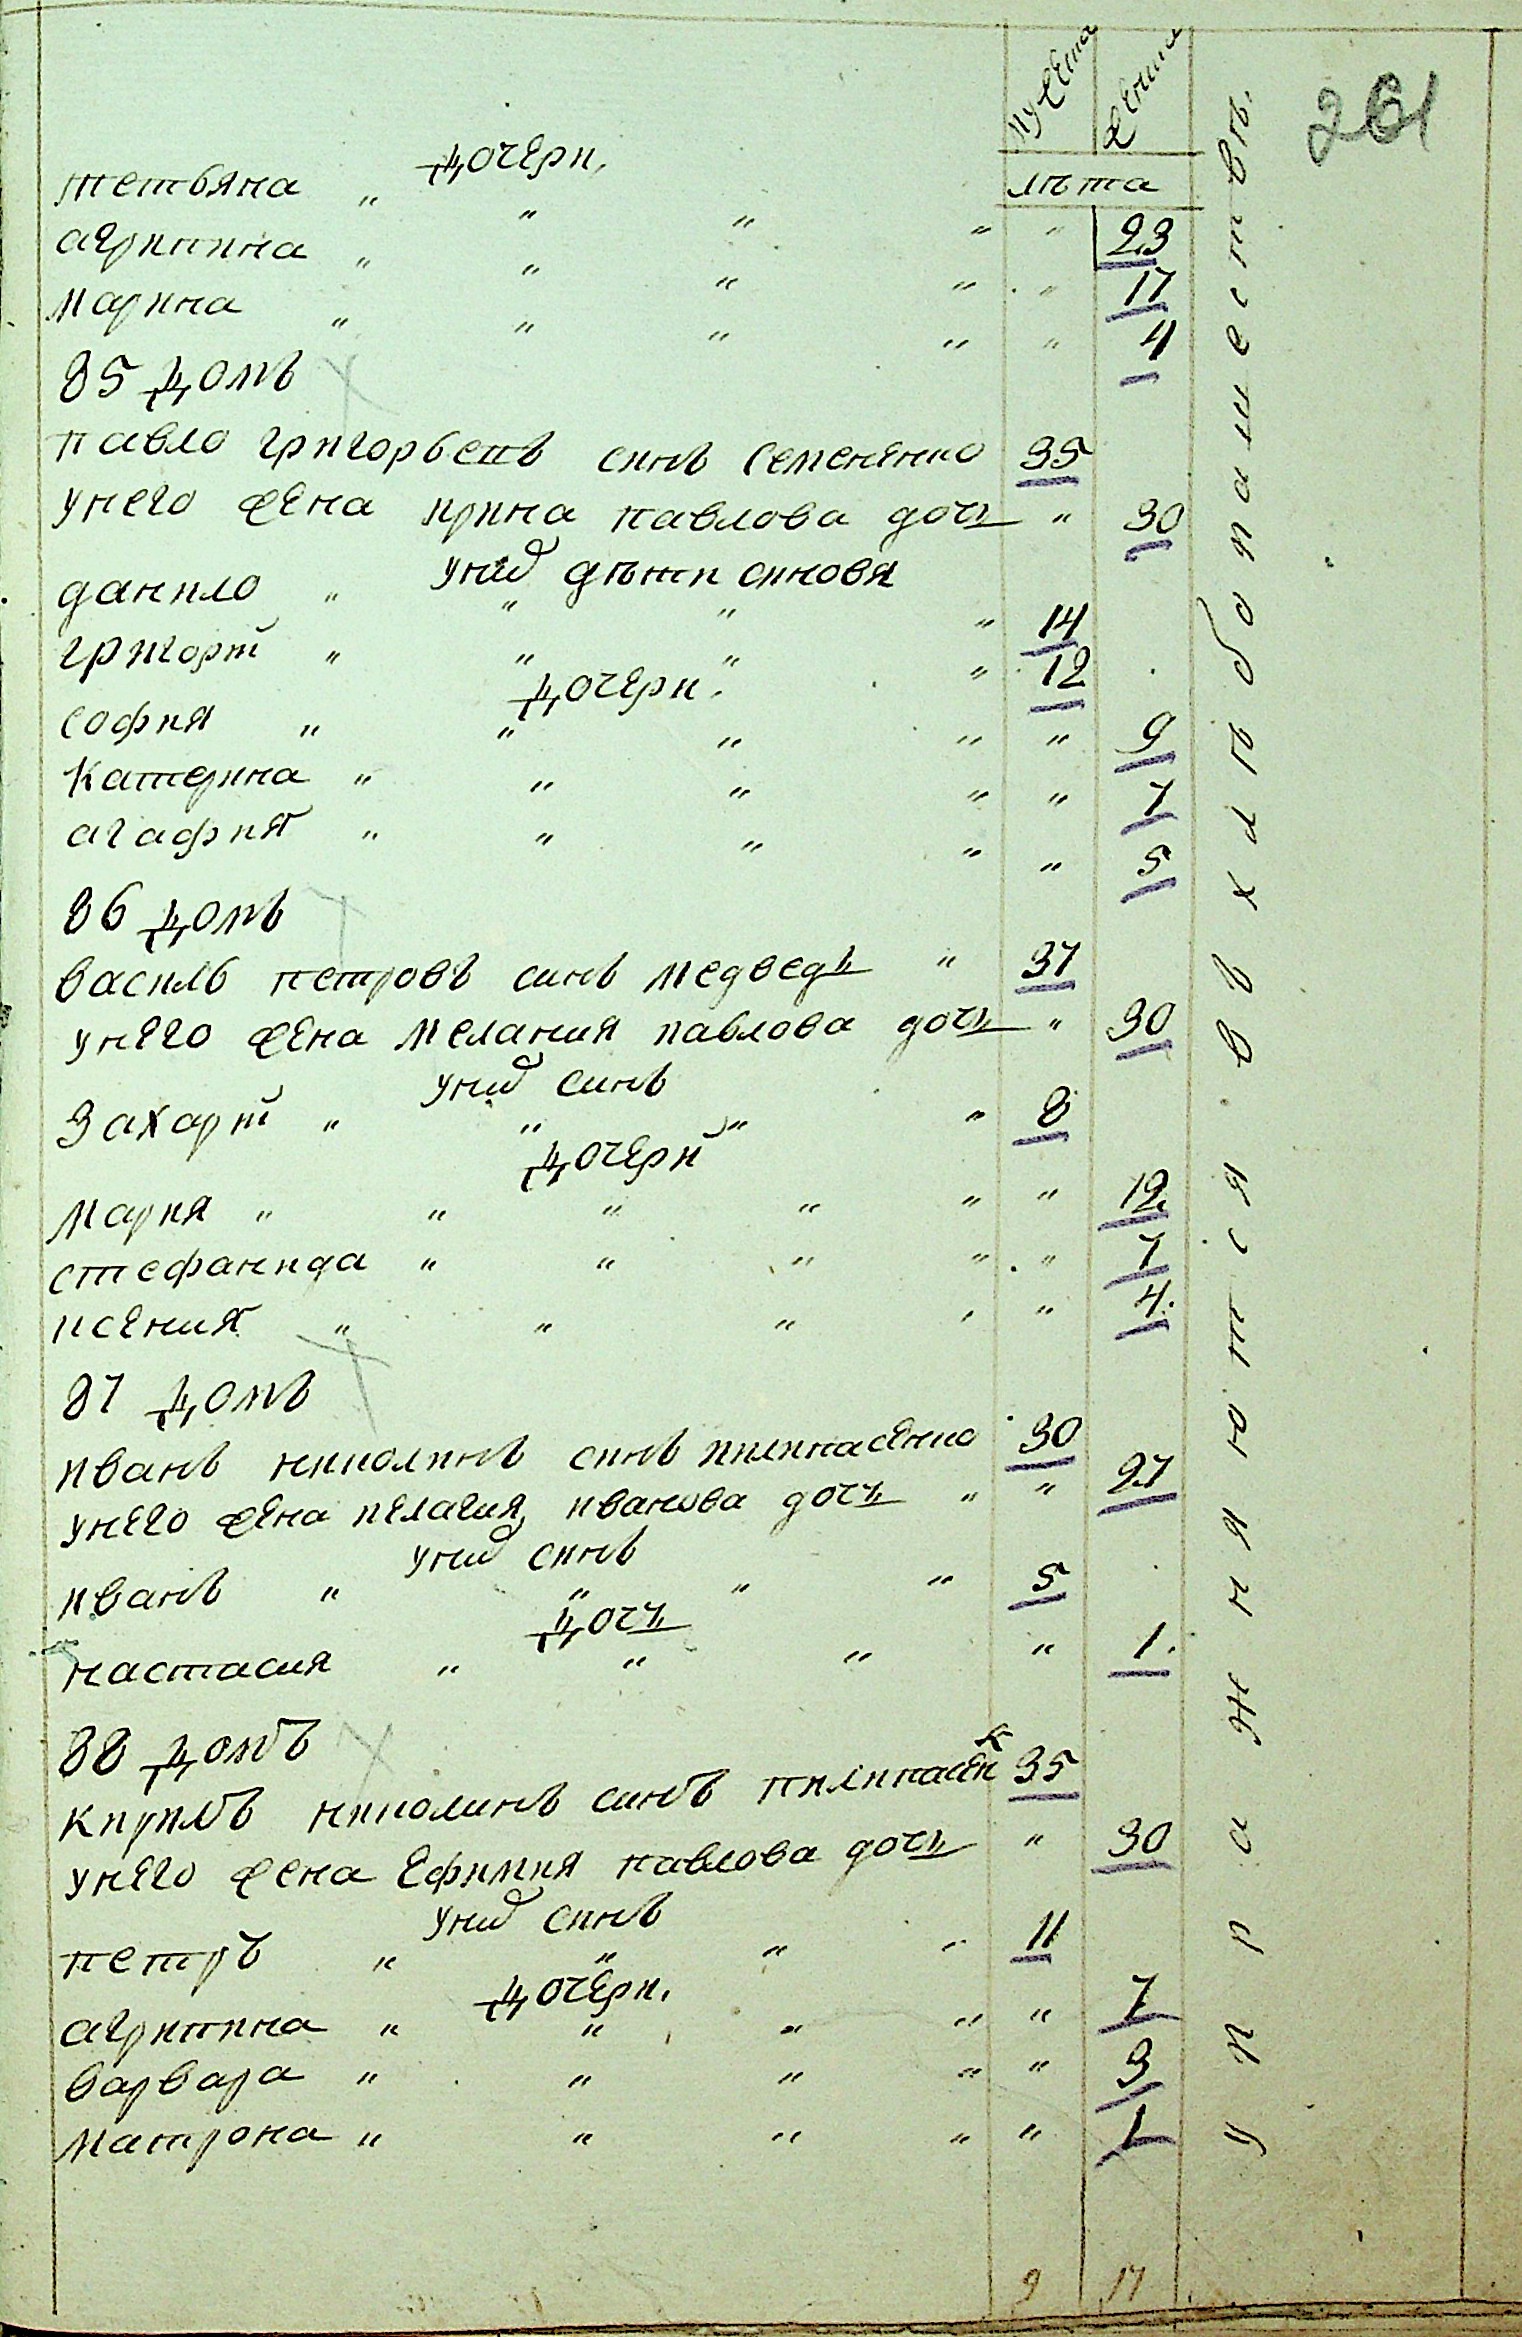 мужеска
женска
261
лѣта
Дочери.
тетьяна " " " " " 23
агрипина " " " " " 17
марина " " " " " 4
85 Домъ
павло григорьевъ синъ семененко 35
унего жена ирина павлова дочь " 30
унихъ дѣти синовя
данило " " " " 14
григорій " " " " 12
Дочери.
софия " " " " " 9
катерина " " " " " 7
агафия " " " " " 5
86 Домъ
василь петровъ синъ медведь " 37
унего жена мелания павлова дочь " 30
унихъ синъ
Захарій " " " " 8
Дочери
мария " " " " " " 12
стефанида " " " " " 7
ксения " " " " " 4.
87 Домъ
иванъ николинъ синъ пилипасенко 30
унего жена пелагия ивановa дочь " " 27
унихъ синъ
иванъ " " " " 5
Дочь
настасия " " " " 1.
88 Домъ
кирилъ николинъ синъ пилипасенк 35
унего жена Ефимия павлова дочь " 30
унихъ синъ
петръ " " " " 11
Дочери.
агрипина " " " " " 7
варвара " " " " " 3
матрона " " " " " 1
9 17
упражняются въ хлѣбопашествѣ.